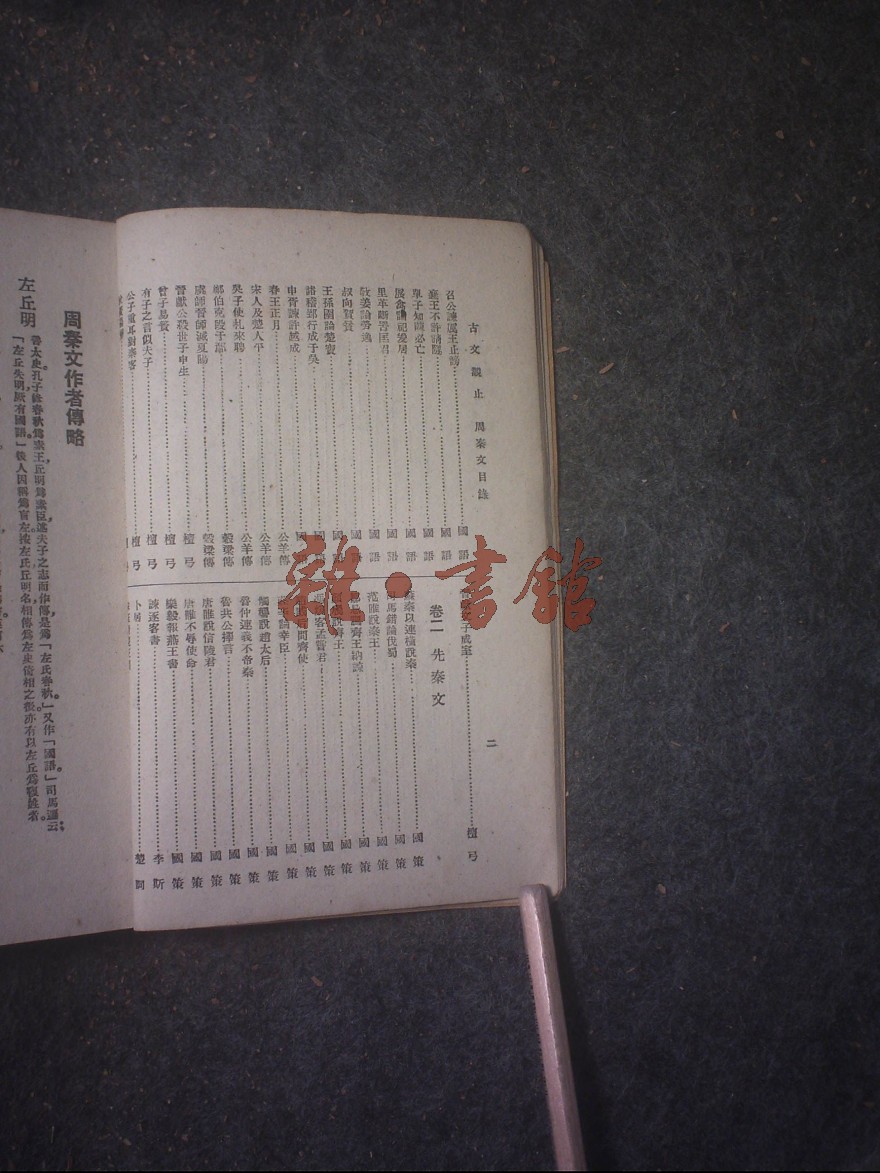 古文觀止　周秦文目錄
二
召公諫厲王止謗 國語
襄王不許請隧 國語
單子知陳必亡 國語
展禽論祀爰居 國語
里革斷罟匡君 國語
敬姜論勞逸 國語
叔向賀貧 國語
王孫圉論楚寶 國語
諸稽郢行成于吳 國語
申胥諫許越成 國語
春王正月 公羊傳
宋人及楚人平 公羊傳
吳子使札來聘 公羊傳
鄭伯克段于鄢 穀梁傳
虞師晉師滅夏陽 穀梁傳
晉獻公殺世子申生 檀弓
曾子易簀 檀弓
有子之言似夫子 檀弓
公子重耳對秦客 檀弓
子成室 檀弓
卷二　先秦文
蘇秦以連橫說秦 國策
司馬錯論伐蜀 國策
范雎說秦王 國策
齊王納諫 國策
說齊王 國策
客孟嘗君 國策
后問齊使 國策
論幸臣 國策
觸讋說趙太后 國策
魯仲連義不帝秦 國策
魯共公擇言 國策
唐雎說信陵君 國策
唐雎不辱使命 國策
樂毅報燕王書 國策
諫逐客書 李斯
卜居 楚詞
周秦文作者傳略
左丘明
魯太史。孔子作春秋爲素王，丘明爲素臣，述夫子之志而作傳，是爲「左氏春秋。」又作「國語。」司馬遷云：
「左丘失明，厥有國語。」後人因稱爲盲左。按左氏丘明名，相傳爲左史倚相之後，亦有以左丘爲複姓者。
雜·書館